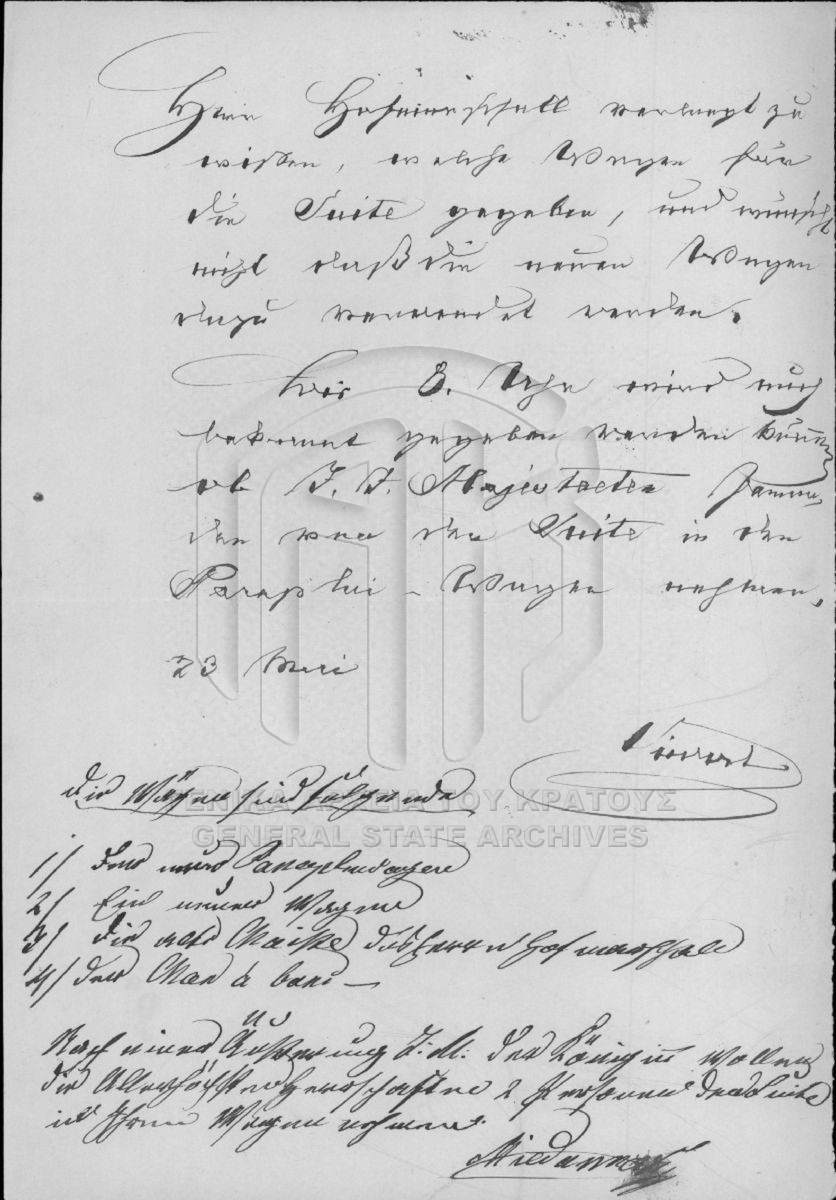 Herr Hofmarschall verlangt zu
wissen, welche Wagen für
die Suite gegeben, und wünscht
nicht daß die neuen Wagen
dazu verwendet werden.
Bis 8. Uhr wird auch
bekannt gegeben werden können
ob I. I. Majestaeten Jeman¬
den von der Suite in den
Paraplui-Wagen nehmen.
23 Mai
Die Wägen sind folgende
ΓΕΝΙΚΑ ΑΡΧΕΙΑ ΤΟΥ ΚΡΑΤΟΥΣ
GENERAL STATE ARCHIVES
1/ Der neue
2/ Ein neuer Wagen
3/ Die alte des Herrn Hofmarschall
4/ der Char à banc —
Nach einer Äußerung I. M. der Königin wollen
die Allerhöchsten Herrschaften 2 Personen der Suite
in Ihren Wagen nehmen